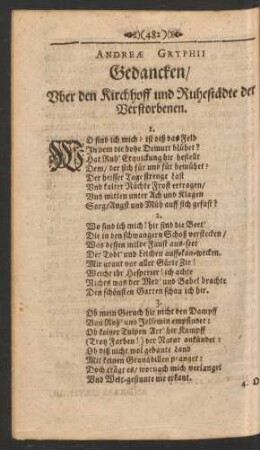 (482)
ANDREÆ GRYPHII
Gedancken/
Vber den Kirchhoff und Ruhestädte der
Verstorbenen.
1.
WO find ich mich? ist diß das Feld
In dem die hohe Demutt blühet?
Hat Ruh' Erquickung hir bestellt
Dem/ der sich für und für bemühet?
Der heisser Tage strenge Last
Vnd kalter Nächte Frost ertragen/
Vnd mitten unter Ach und Klagen
Sorg/Angst und Müh auff sich gefast?
2.
Wo find ich mich/ hir sind die Beet'
Die in den schwangern Schoß verstecken/
Was dessen milde Faust aus-seet
Der Todt' und Leichen aufferwecken.
Mir graut vor aller Gärte Zir!
Weicht ihr Hesperiner! ich achte
Nichts was der Med' und Babel brachte
Den schönsten Garten schau ich hir.
3.
Ob mein Geruch hir nicht den Dampff
Von Roß' und Jelsemin empfindet:
Ob keiner Tulpen Art' hir Kampff
(Trotz Farben!) der Natur ankündet:
Ob diß nicht wol gebaute Land
Mit keinen Granadillen pranget:
Doch trägt es/ wornach mich verlanget
Vnd Welt-gesinnte nie erkant.
4. O